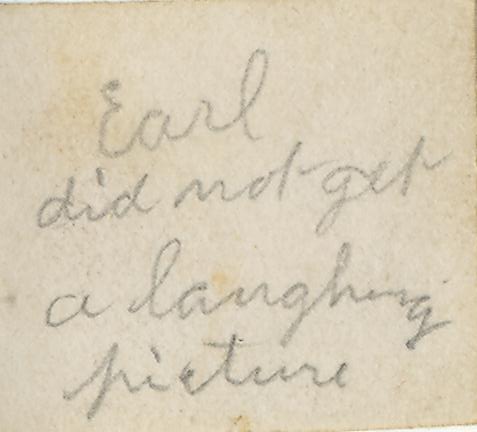 Earl
did not get
a laughing
picture